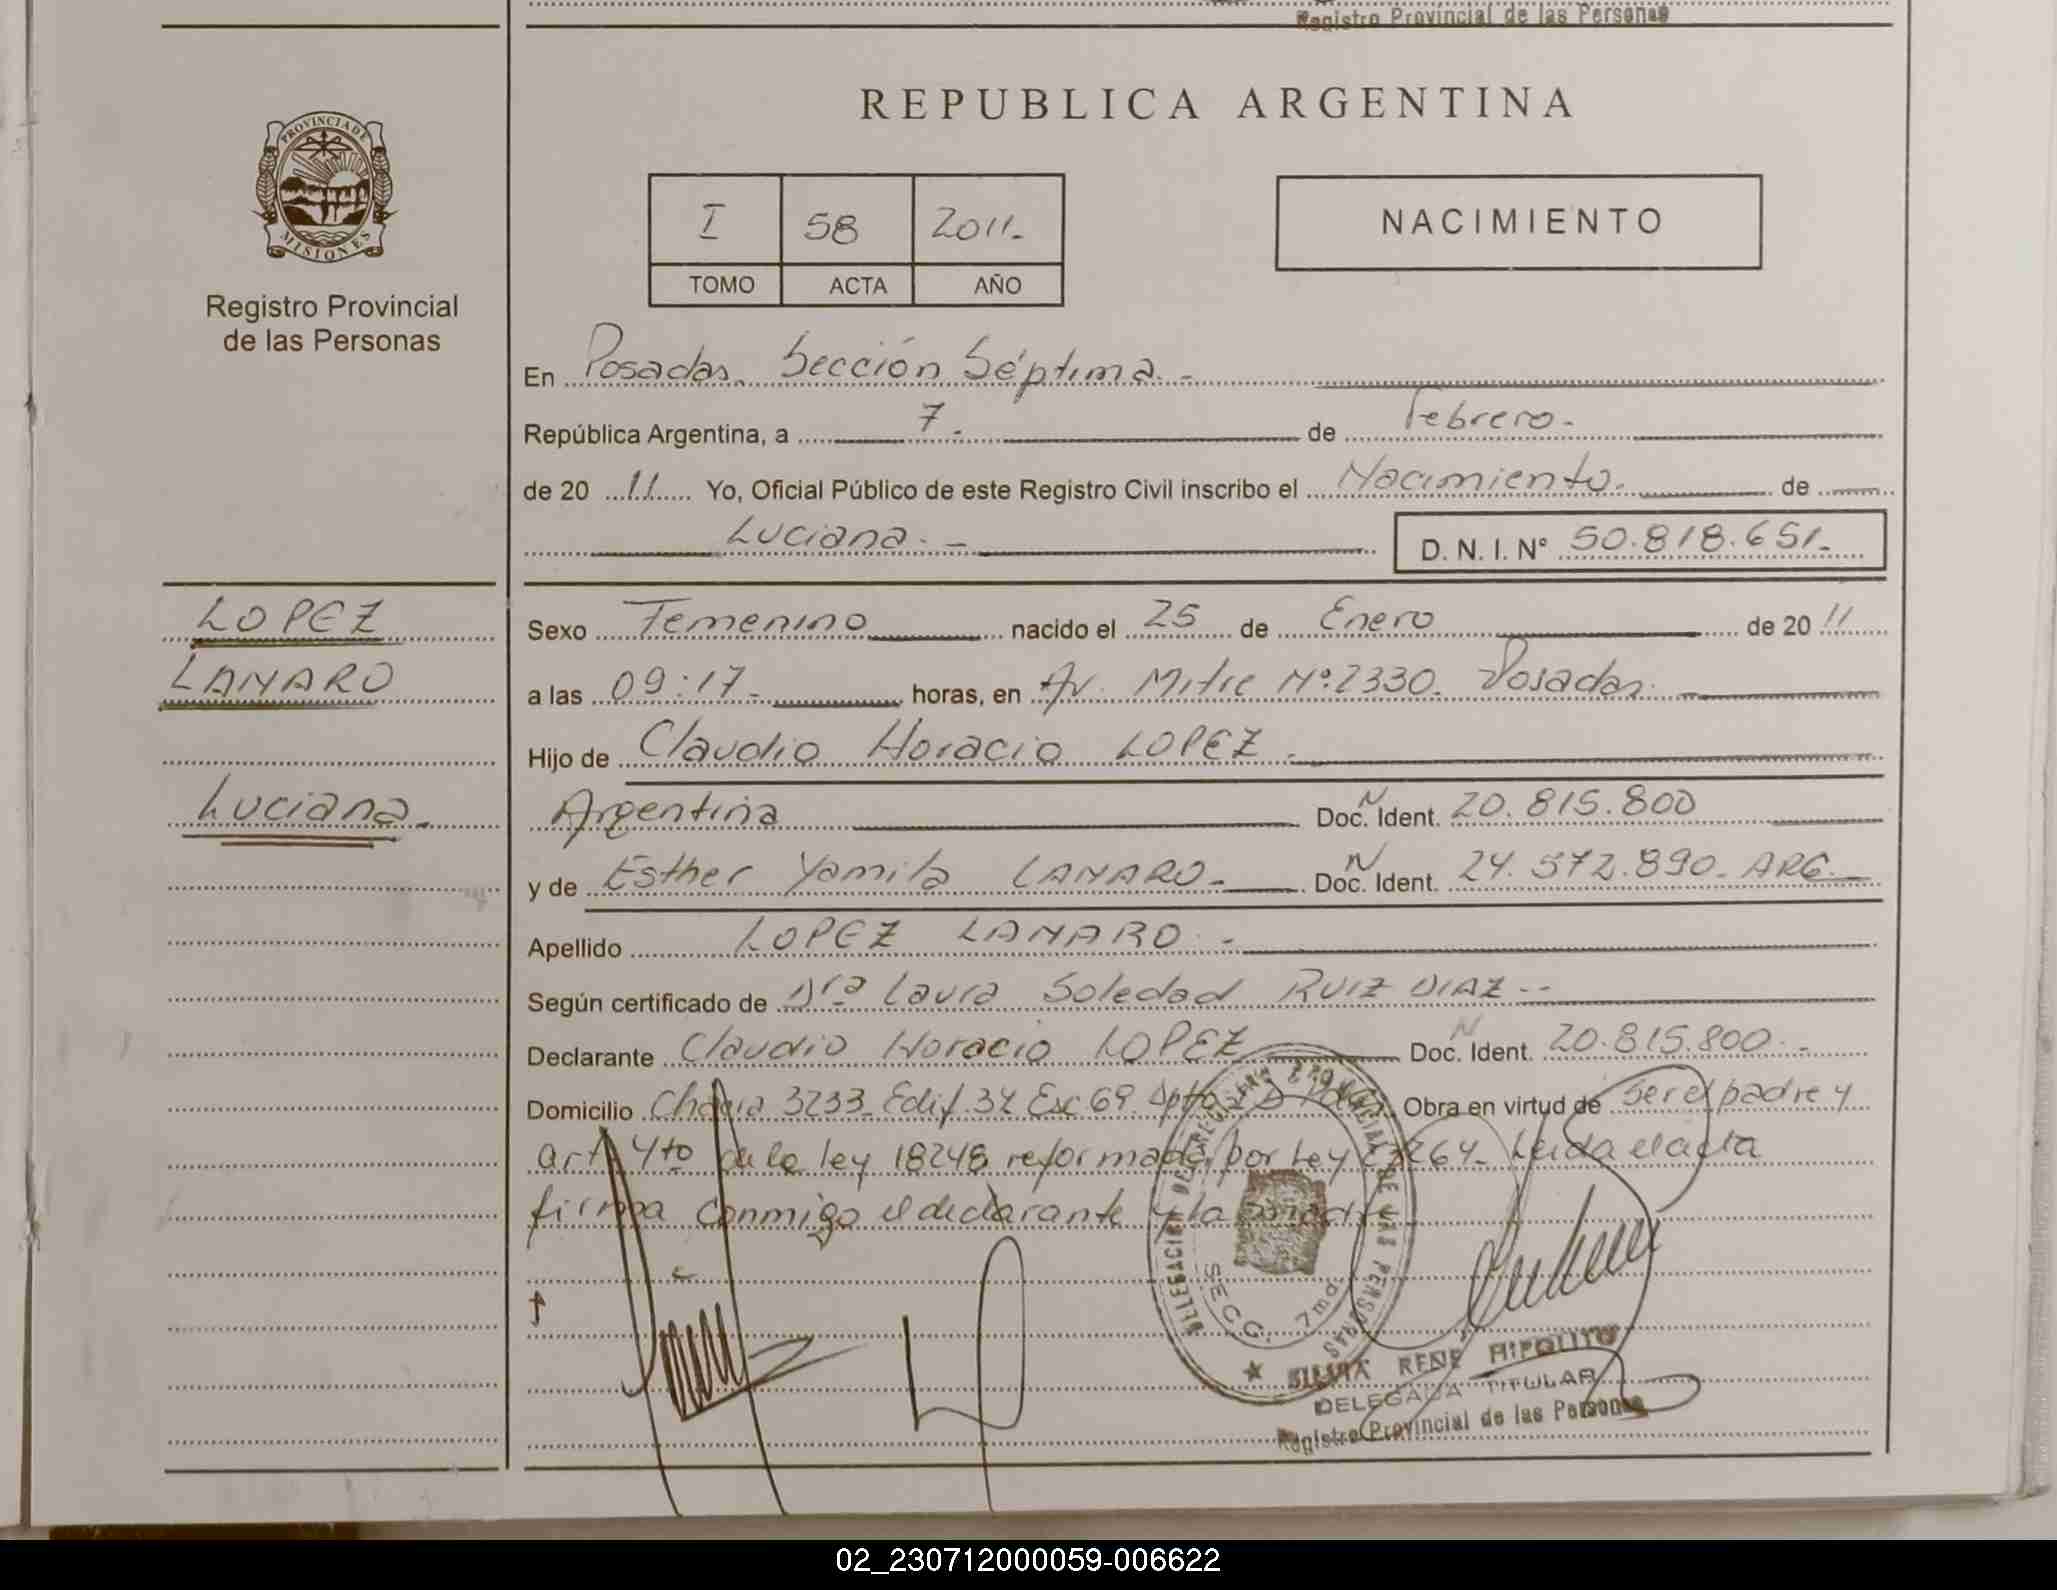 Registro Provincial de las Personas
REPUBLICA ARGENTINA
PROVINCIA DE
MISIONES
Registro Provincial
de las Personas
I 58 2011.-
TOMO ACTA AÑO
NACIMIENTO
En Posadas. Sección Séptima.-
República Argentina, a 7.- de Febrero.-
de 20 11 Yo, Oficial Público de este Registro Civil inscribo el Nacimiento. de
Luciana.-
D. N. I. N° 50.818.651.-
LOPEZ
LAMARO
Luciana.
Sexo Femenino nacido el 25 de Enero de 20 11
a las 09:17.- horas, en Av. Mitre Nº 2330. Posadas.-
Hijo de Claudio Horacio LOPEZ.-
Argentina Doc. N Ident. 20.815.800
y de Esther Yamila LAMARO.- Doc. N Ident. 24.572.890.- ARG.-
Apellido LOPEZ LAMARO.-
Según certificado de Dra Laura Soledad RUIZ DIAZ.--
Declarante Claudio Horacio LOPEZ Doc. N Ident. 20.815.800.-
Domicilio Chacra 3233 Edif 34 Esc 69 Dpto Obra en virtud de ser el padre y
art 4to de la ley 18248 reformada por Ley 23264- Leida el acta
firma conmigo el declarante y la madre
DELEGACION DEL REGISTRO PROVINCIAL DE LAS PERSONAS
SECC. 7ma
SILVIA RENE HIPOLITO
DELEGADA TITULAR
Registro Provincial de las Personas
02_230712000059-006622